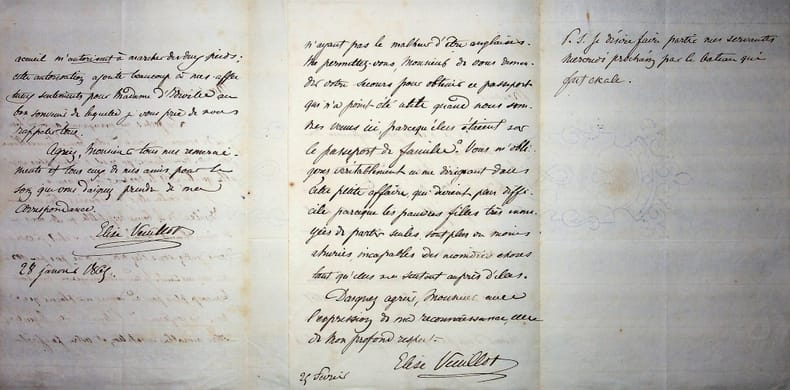 accueil m'autorisent à marcher des deux pieds;
cette autorisation ajoute beaucoup à mes affec
tueux sentiments pour Madame d'
bon souvenir de laquelle je vous prie de nous
rappeler tous.
Agréez, Monsieur tous mes remerci-
ments et tous ceux de mes amis pour le
soin que vous daignez prendre de ma
correspondance.
Elise Veuillot
28 janvier 1865.
n'ayant pas le malheur d'être anglaises.
Me permettez-vous, Monsieur de vous deman-
der votre secours pour obtenir ce passeport
qui n'a point été utile quand nous som-
mes venus ici parcequ'elles étaient sur
le passeport de famille. Vous m'obli-
gerez véritablement en me dirigeant dans
cette petite affaire, qui devient plus diffi-
cile parceque les pauvres filles très
de partir seules sont plus ou moins
ahuries incapables des moindres choses
tout qu'elles me sentent auprès d'elles.
Daignez agréer, Monsieur avec
l'expression de ma reconnaissance, celle
de mon profond respect.
Elise Veuillot
25 février
P. S. Je désire faire partir mes servantes
mercredi prochain par le bateau qui
fait escale.